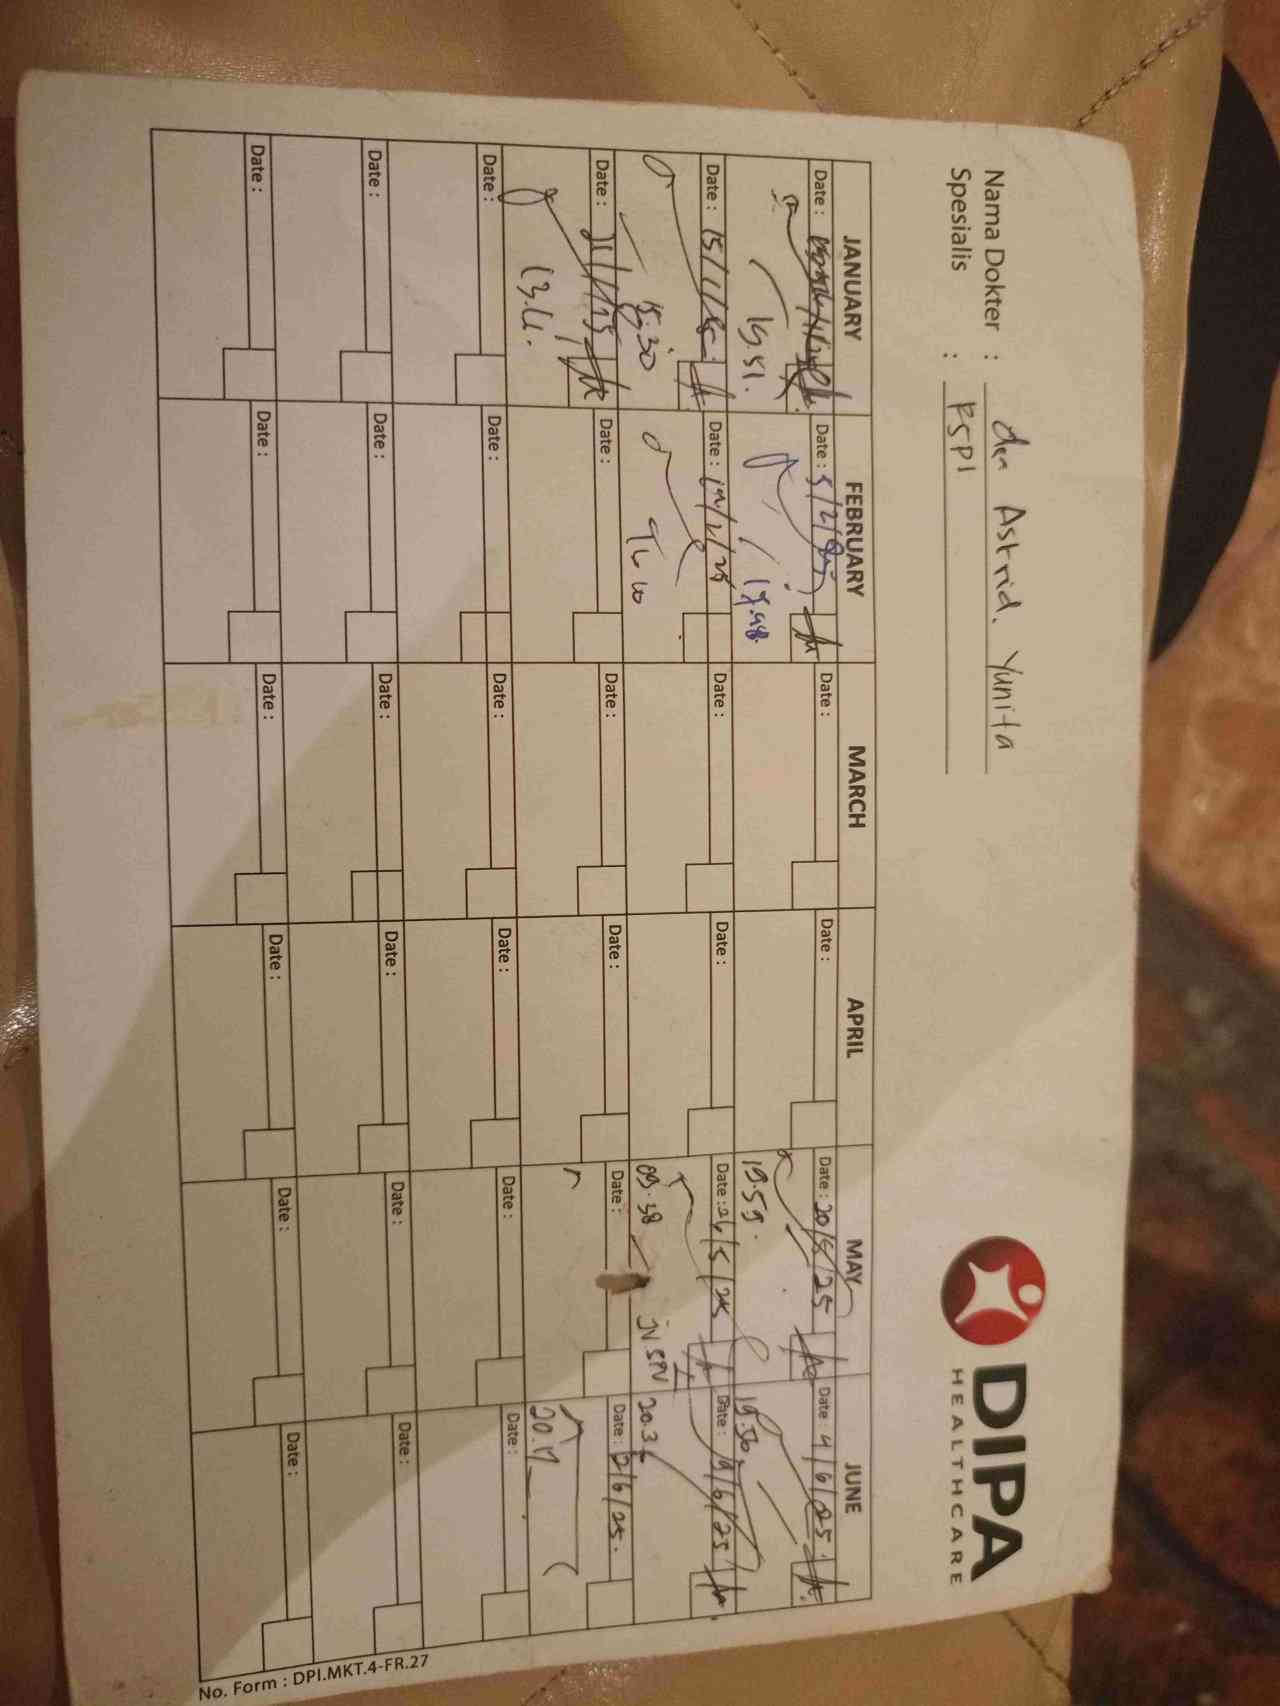 Nama Dokter : Astrid. Yunita
Spesialis :
DIPA
HEALTHCARE
JANUARY FEBRUARY MARCH APRIL MAY JUNE
Date : Date : 5/2/25 Date : Date : Date : 20/5/25 Date : 4/6/25
19.51. 19.48. 19.59. 19.56
Date : 15/1/25 Date : Date : Date : Date : 26/5/25 Date : 9/6/25
15.30 09.38 JV. SPV 20.36
Date : Date : Date : Date : Date : Date :
13.41. 20.17
Date : Date : Date : Date : Date : Date :
Date : Date : Date : Date : Date : Date :
Date : Date : Date : Date : Date : Date :
No. Form : DPI.MKT.4-FR.27